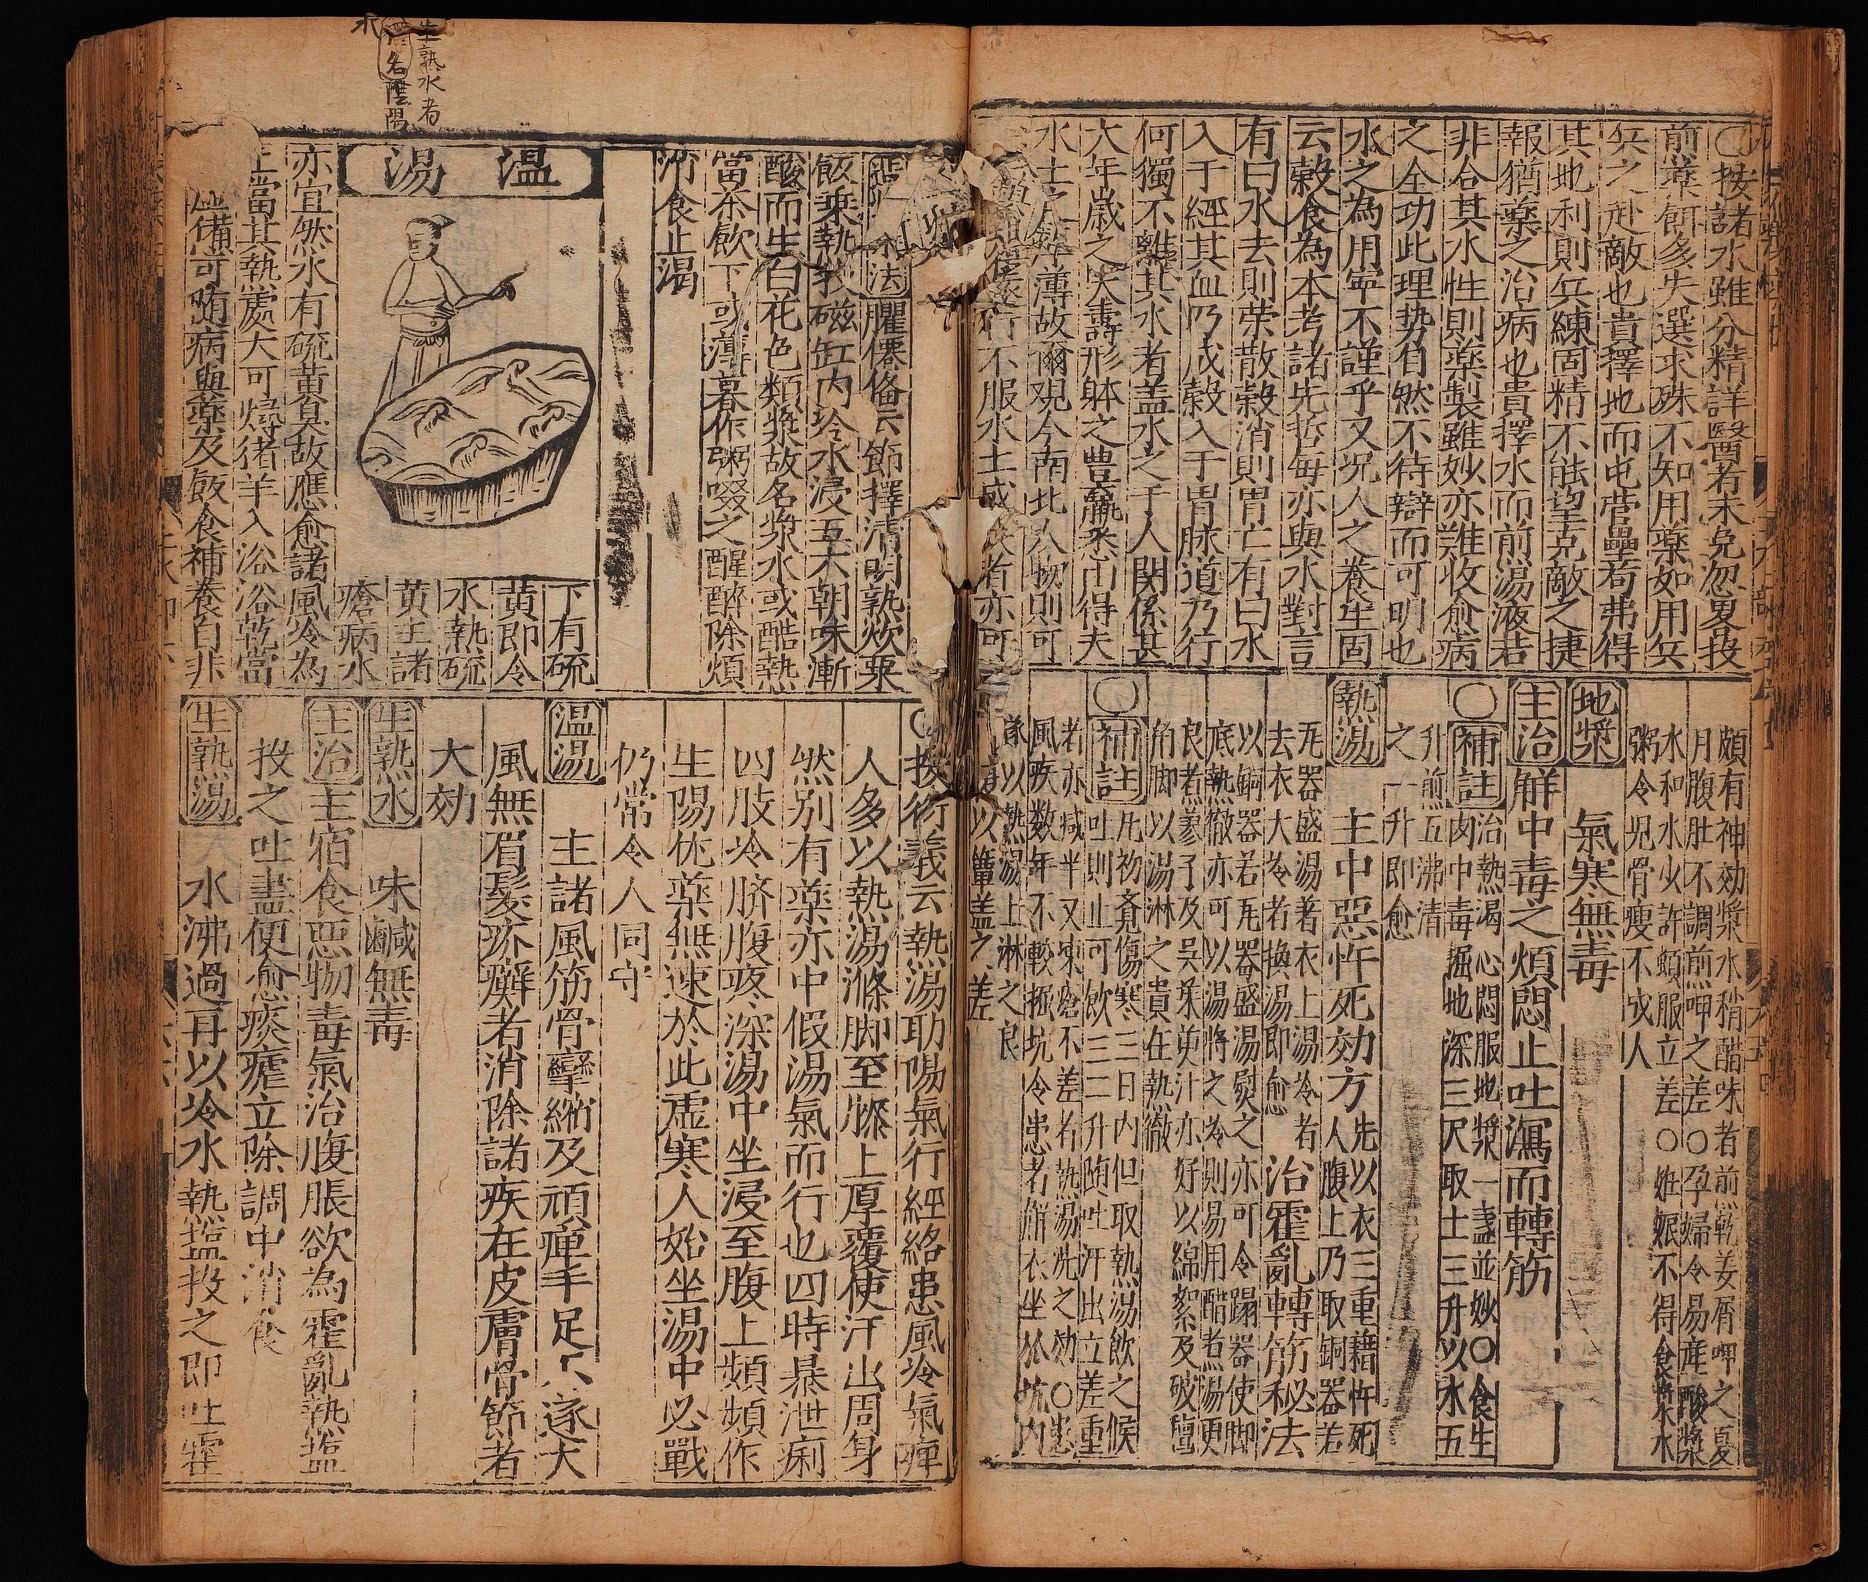 ○按諸水雖分精詳醫者未免忽畧投
前藥飼多失選求殊不知用藥如用兵
兵之赴敵也貴擇地而屯營壘苟弗得
其地利則兵練固精不能望克敵之捷
報猶藥之治病也貴擇水而煎湯液若
非合其水性則藥製雖妙亦難收愈病
之全功此理勢自然不待辯而可明也
水之為用寧不謹乎又況人之養生固
云穀食為本考諸先哲每亦與水對言
有曰水去則荣散穀消則胃亡有曰水
入于經其血乃成穀入于胃脉道乃行
何獨不離其水者盖水之于人関係甚
大年歳之夭壽形躰之豊羸悉由得夫
水土之厚薄故爾观今南北人物則可
行不服水土或者亦可
頗有神効漿水稍醋味者煎乾姜屑呷之夏
月腹肚不調煎呷之差○孕婦令易産酸漿
水和水少許頓服立差○姙娠不得食漿水
粥令児骨瘦不成人
地漿
氣寒無毒
主治 觧中毒之煩悶止吐瀉而轉筋
○補註 治熱渴心悶服地漿一盞並妙○食生
肉中毒掘地深三尺取土三升以水五
升煎五沸清
之一升即愈
熱湯
主中惡忤死効方先以衣三重藉忤死
人腹上乃取銅器若
瓦器盛湯著衣上湯冷者
去衣大冷者換湯即愈 治霍亂轉筋秘法
以銅器若瓦器盛湯熨之亦可令蹋器使脚
底熱徹亦可以湯將之冷則易用醋煮湯更
良煮蓼子及吳茱萸汁亦好以綿絮及破氊
角脚以湯淋之貴在熱徹
○補註 凡初覔傷寒三日内但取熱湯飲之候
吐則止可飲三二升随吐汗出立差重
者亦減半又凍瘡不差者熱湯洗之効○患
風疾数年不較掘坑令患者觧衣坐於坑内
遂以熱湯上淋之良
以簟盖之差
法 臞僊俻云節擇清明熟炊粟
飯乗熱投磁缸内冷水浸五六朝味漸
酸而生白花色類漿故名漿水或酷熱
當茶飲下或薄暮作粥啜之醒醉除煩
消食止渴
温湯
下有硫
黄即令
水熱硫
黄主諸
瘡病水
亦宜然水有硫黄臭故應愈諸風冷為
上當其熱處大可燖猪羊入浴浴乾當
備可隨病與藥及飯食補養自非
○按衍義云熱湯助陽氣行經絡患風冷氣痺
人多以熱湯滌脚至膝上厚覆使汗出周身
然别有藥亦中假湯氣而行也四時暴泄痢
四肢冷臍腹疼深湯中坐浸至腹上頻頻作
生陽佐藥無速於此虛寒人始坐湯中必戰
仍常令人同守
温湯 主諸風筋骨攣縮及頑痺手足不遂大
風無眉髮疥癬者消除諸疾在皮膚骨節者
大効
生熟水 味鹹無毒
主治 主宿食惡物毒氣治腹脹欲為霍亂熱盬
投之吐盡便愈痰瘧立除調中消食
生熟湯 水沸過再以冷水執盬投之即吐霍
生熟水者
名陰陽
水